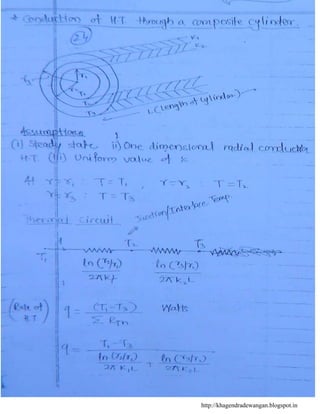 * Conduction of H.T. through a composite cylinder.
24
K₁
K₂
r₁
r₂
r₃
T₁
T₂
T₃
L (length of cylinder)
Assumptions
(i) Steady state ii) One dimensional radial conduction
H.T. (iii) Uniform value of K
At r=r₁ : T=T₁ , r=r₂ : T=T₂
r=r₃ : T=T₃
Thermal circuit Junction/Interface Temp.
T₁ T₂ T₃
ln(r₂/r₁) / 2πK₁L ln(r₃/r₂) / 2πK₂L
(Rate of H.T.) q = (T₁-T₃) / Σ RTh Watts
q = T₁-T₃ / ln(r₂/r₁) / 2πK₁L + ln(r₃/r₂) / 2πK₂L
http://khagendradewangan.blogspot.in